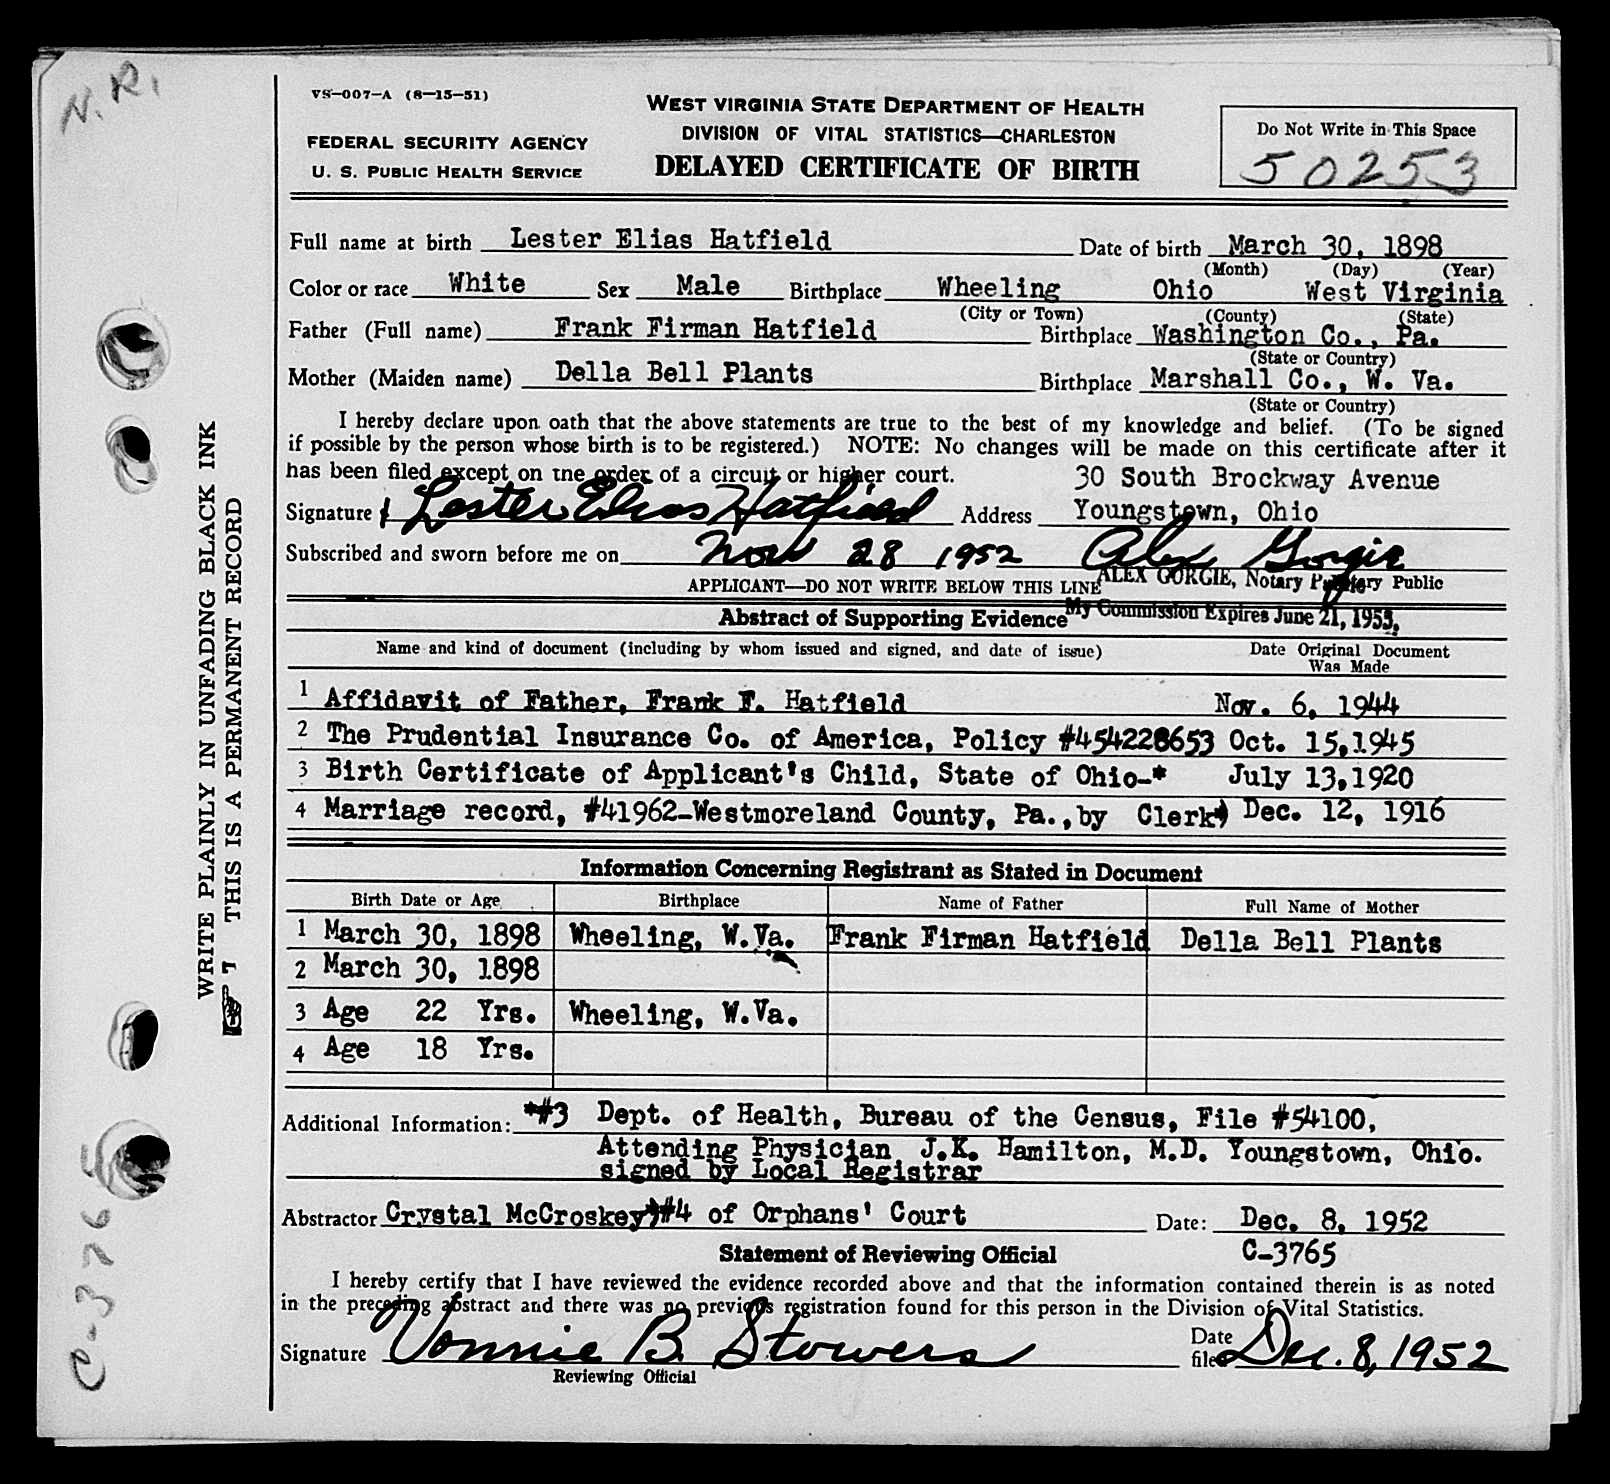 N.R.
VS-007-A (8-15-51)
WEST VIRGINIA STATE DEPARTMENT OF HEALTH
DIVISION OF VITAL STATISTICS—CHARLESTON
DELAYED CERTIFICATE OF BIRTH
FEDERAL SECURITY AGENCY
U. S. PUBLIC HEALTH SERVICE
Do Not Write in This Space
50253
Full name at birth Lester Elias Hatfield Date of birth March 30, 1898
(Month) (Day) (Year)
Color or race White Sex Male Birthplace Wheeling Ohio West Virginia
(City or Town) (County) (State)
Father (Full name) Frank Firman Hatfield Birthplace Washington Co., Pa.
(State or Country)
Mother (Maiden name) Della Bell Plants Birthplace Marshall Co., W. Va.
(State or Country)
I hereby declare upon oath that the above statements are true to the best of my knowledge and belief. (To be signed
if possible by the person whose birth is to be registered.) NOTE: No changes will be made on this certificate after it
has been filed except on the order of a circuit or higher court. 30 South Brockway Avenue
Signature Lester Elias Hatfield Address Youngstown, Ohio
Subscribed and sworn before me on Nov 28 1952 Alex Gorgie
APPLICANT—DO NOT WRITE BELOW THIS LINE ALEX GORGIE, Notary Public
My Commission Expires June 21, 1953.
Abstract of Supporting Evidence
Name and kind of document (including by whom issued and signed, and date of issue) Date Original Document
Was Made
1 Affidavit of Father, Frank F. Hatfield Nov. 6, 1944
2 The Prudential Insurance Co. of America, Policy #454228653 Oct. 15,1945
3 Birth Certificate of Applicant's Child, State of Ohio-* July 13,1920
4 Marriage record, #41962-Westmoreland County, Pa.,by Clerk* Dec. 12, 1916
Information Concerning Registrant as Stated in Document
Birth Date or Age Birthplace Name of Father Full Name of Mother
1 March 30, 1898 Wheeling, W.Va. Frank Firman Hatfield Della Bell Plants
2 March 30, 1898
3 Age 22 Yrs. Wheeling, W.Va.
4 Age 18 Yrs.
Additional Information: *#3 Dept. of Health, Bureau of the Census, File #54100,
Attending Physician J.K. Hamilton, M.D. Youngstown, Ohio.
signed by Local Registrar
Abstractor Crystal McCroskey *#4 of Orphans' Court Date: Dec. 8, 1952
Statement of Reviewing Official C-3765
I hereby certify that I have reviewed the evidence recorded above and that the information contained therein is as noted
in the preceding abstract and there was no previous registration found for this person in the Division of Vital Statistics.
Signature Vonnie B. Stowers Date filed Dec. 8, 1952
Reviewing Official
WRITE PLAINLY IN UNFADING BLACK INK
THIS IS A PERMANENT RECORD
C-3765